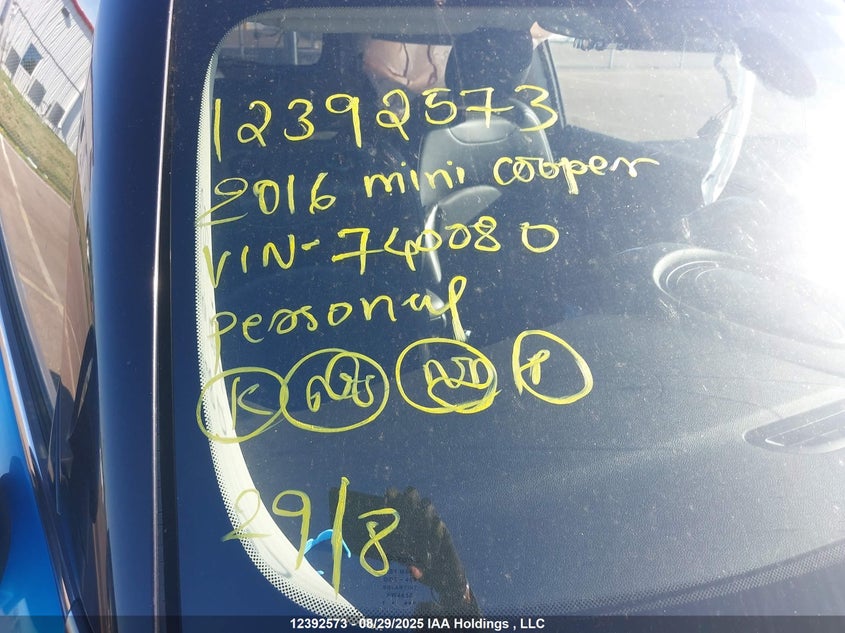 12392573
2016 mini cooper
VIN-740080
personal
K
29/8
12392573 - 08/29/2025 IAA Holdings , LLC